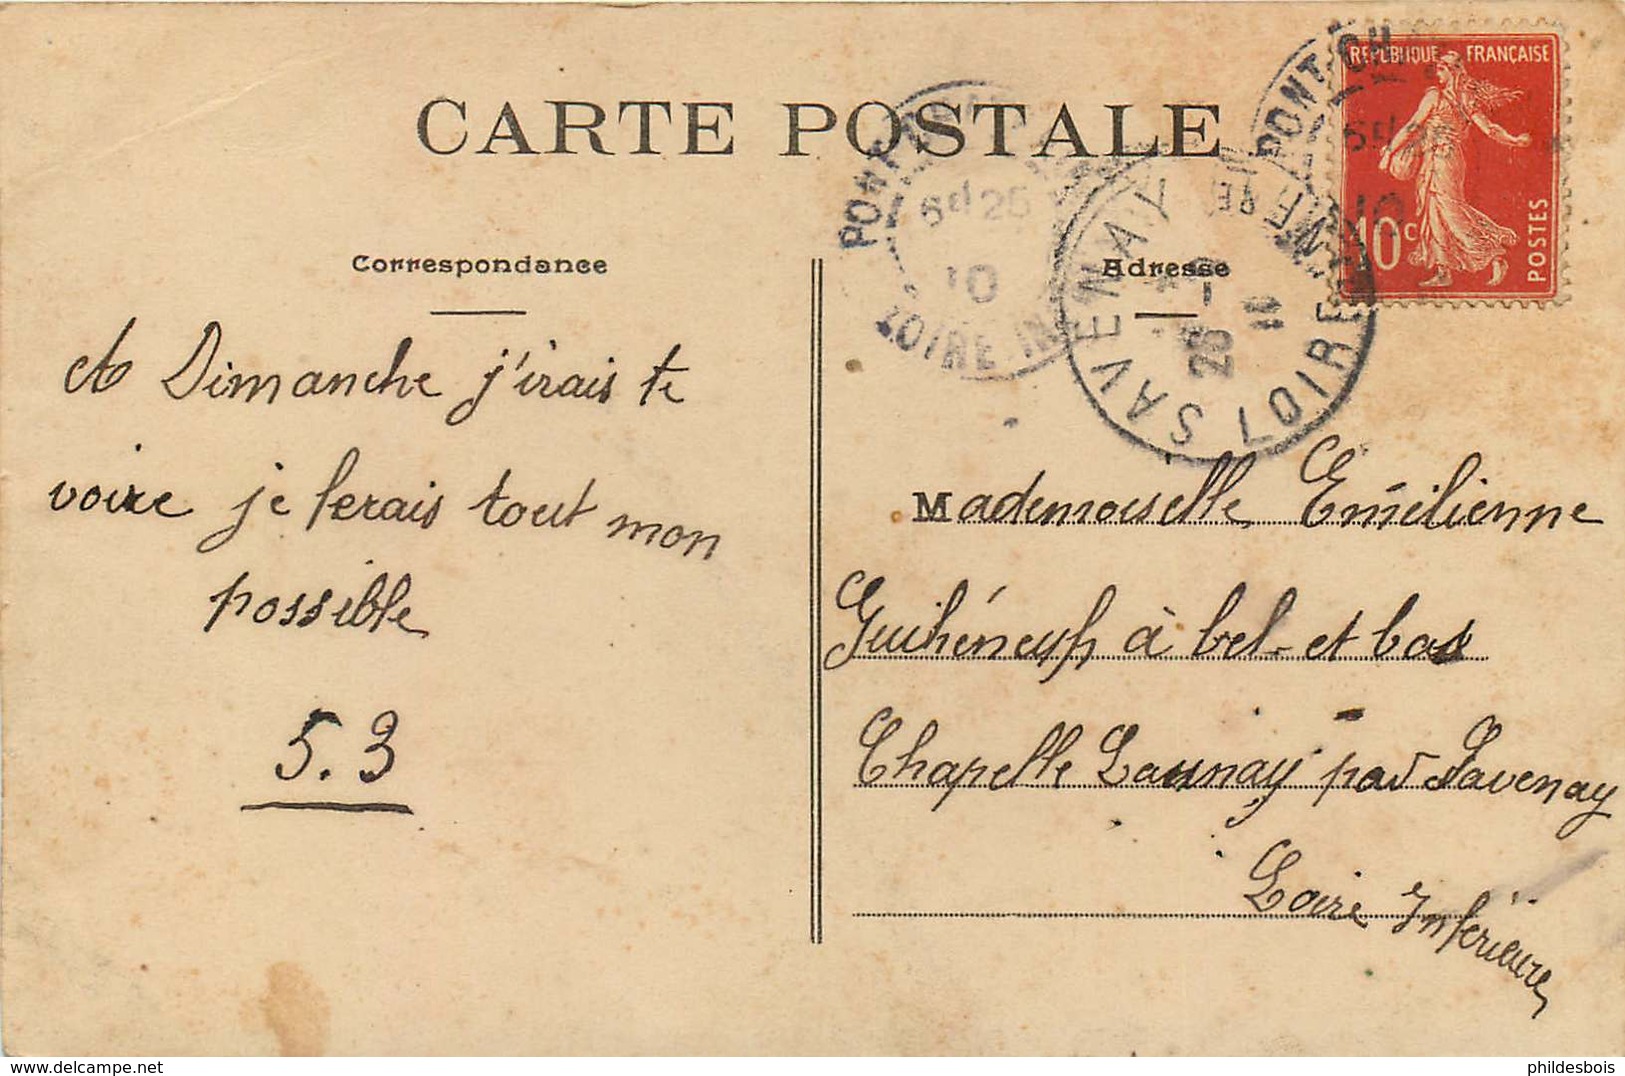 CARTE POSTALE
Correspondance
A Dimanche j'irais te
voire je ferais tout mon
possible
5.3
Adresse
Mademoiselle Emilienne
Guihéneuf à bel et bas
Chapelle Launay par Savenay
Loire Inférieure
REPUBLIQUE FRANÇAISE
10c
POSTES
PONT
6d 25
10
LOIRE INF
SAVENAY
LOIRE INFRE
PONT CH
phildesbois